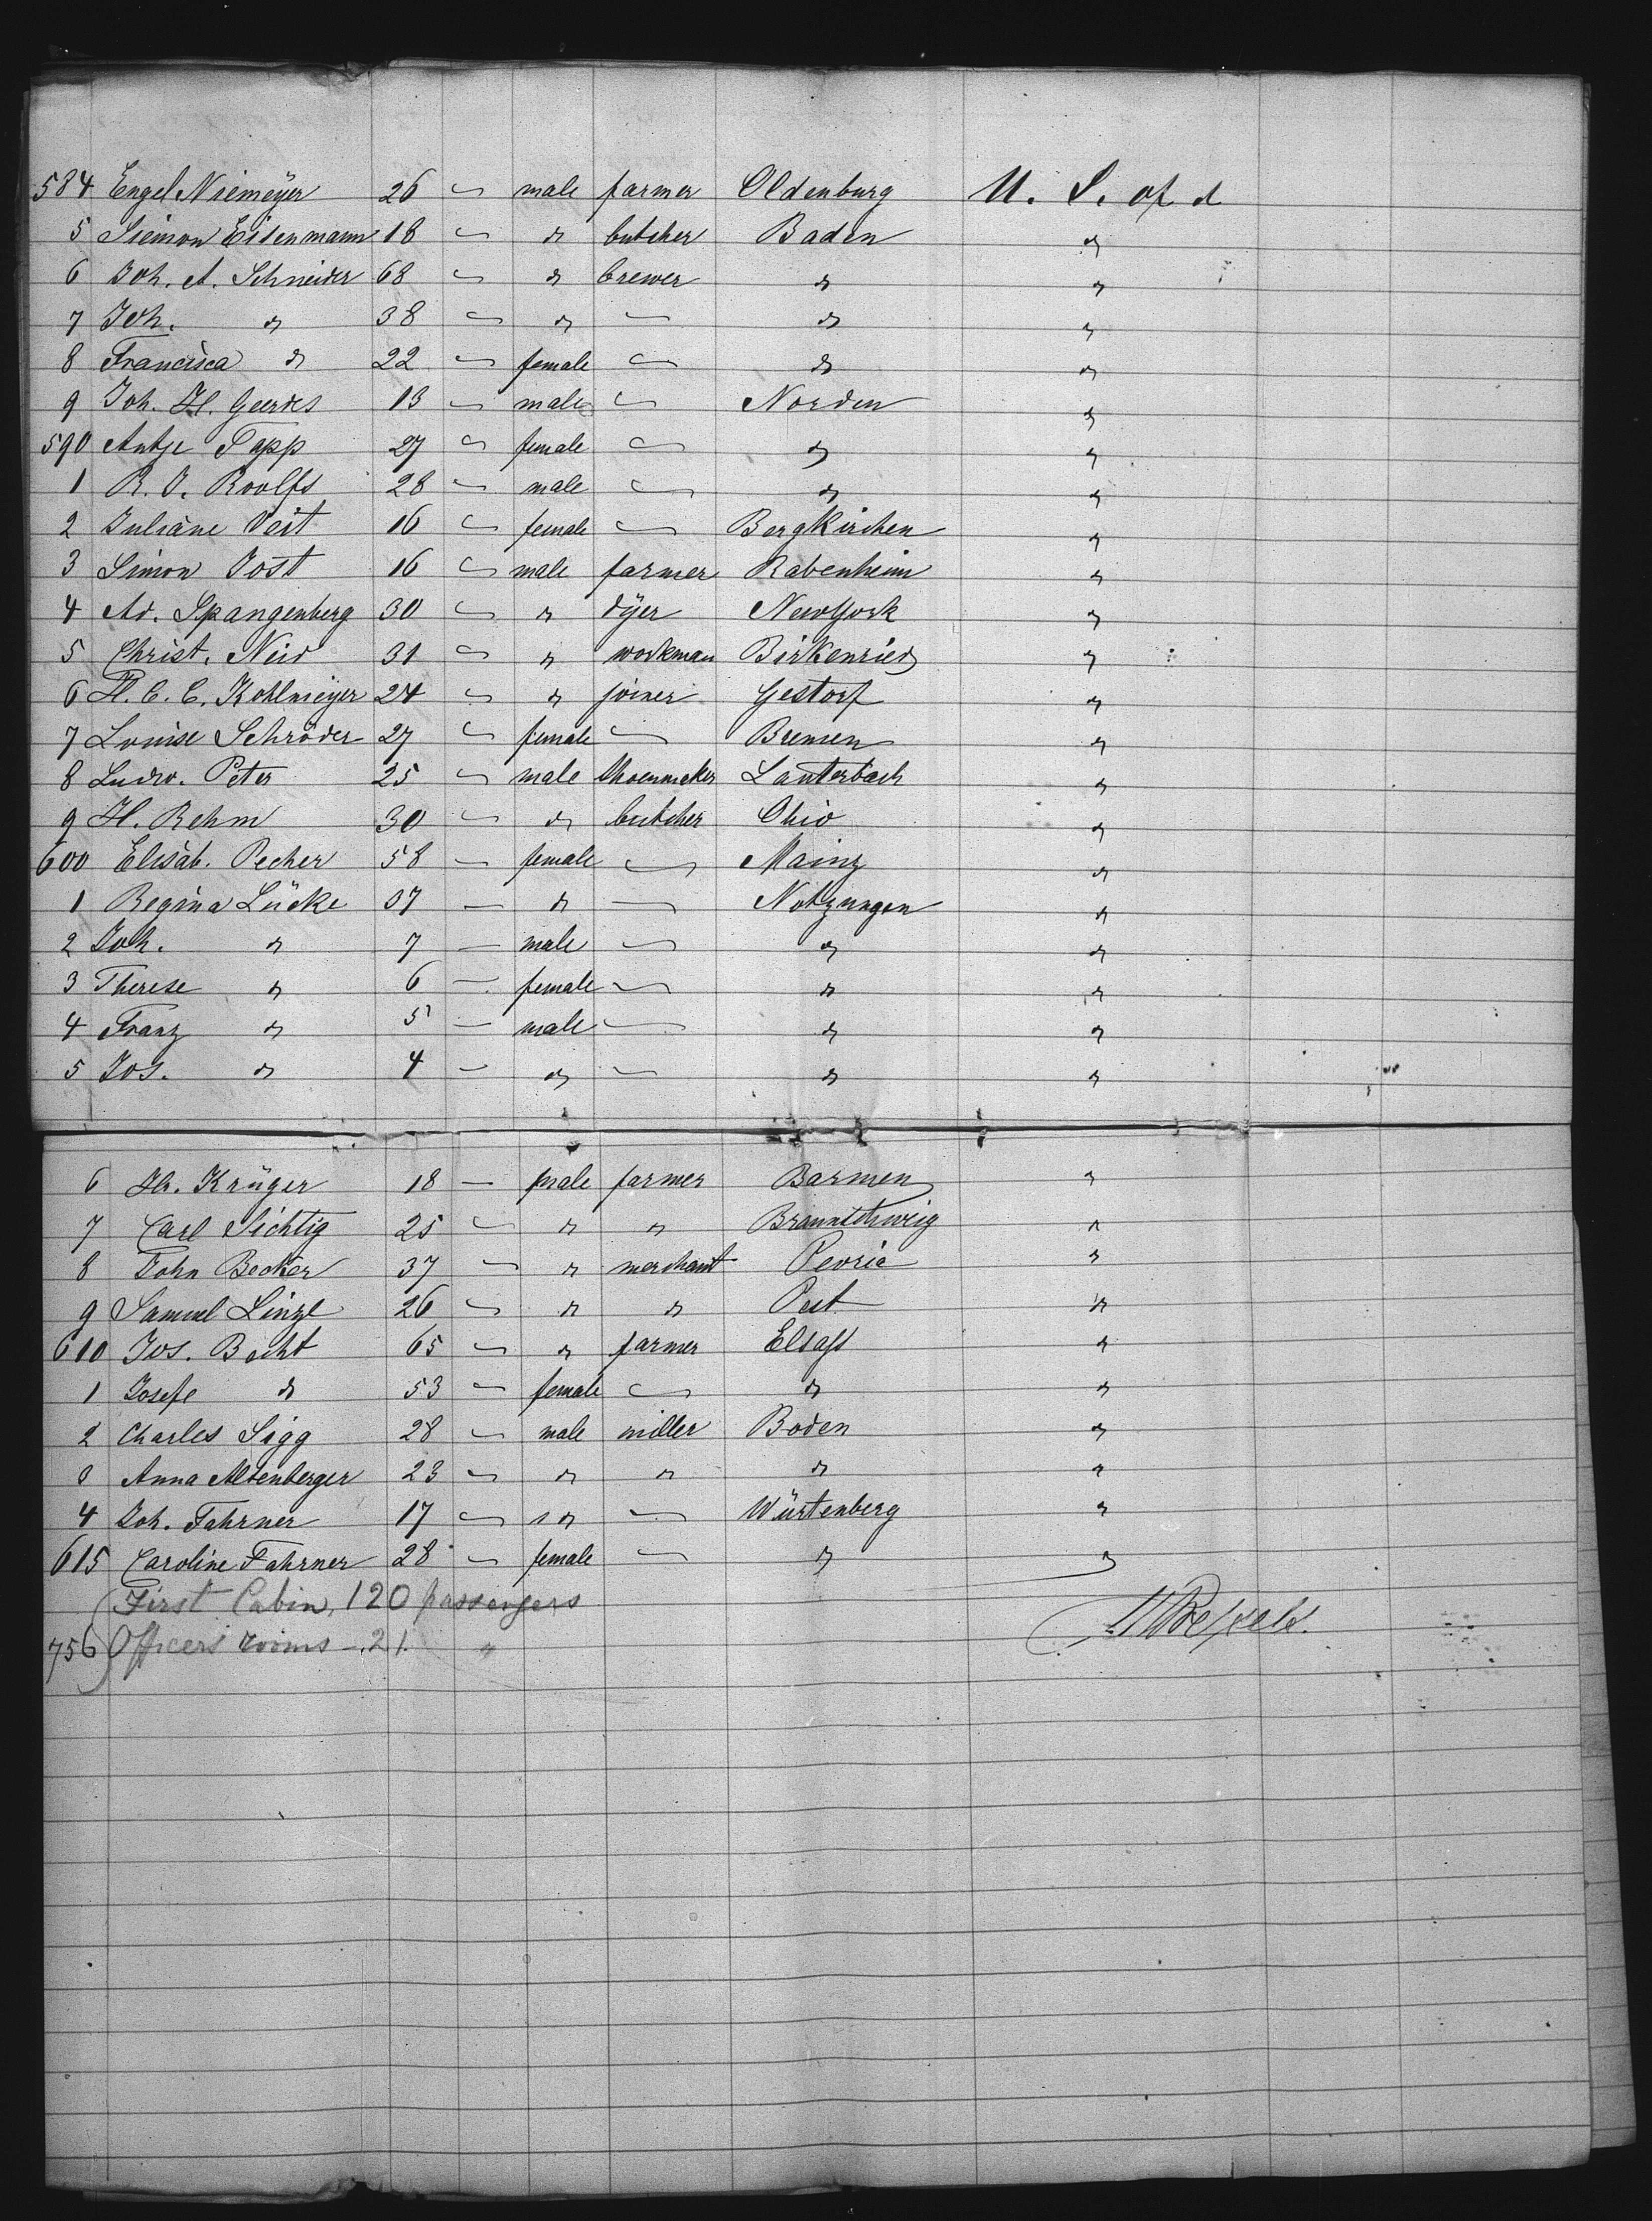 584 Engel Niemeÿer 26 — male farmer Oldenburg U. S. of A
5 Siemon Eisenmann 18 — " butcher Baden "
6 Joh. A. Schneider 68 — " brewer " "
7 Joh. " 38 — " — " "
8 Francisca " 22 — female — " "
9 Joh. H. Geerdes 13 — male — Norden "
590 Antje Tapp 27 — female — " "
1 R. J. Roolfs 28 — male — " "
2 Juliane Veit 16 — female — Bergkirchen "
3 Simon Jost 16 — male farmer Rabenheim "
4 Ad. Spangenberg 30 — " dÿer NewYork "
5 Christ. Neid 31 — " workman Birkenried "
6 H. C. C. Kohlmeÿer 24 — " joiner Gestorf "
7 Louise Schröder 27 — female — Bremen "
8 Ludw. Peter 25 — male Shoemaker Lauterbach "
9 H. Rehm 30 — " butcher Ohio "
600 Elisab. Pecher 58 — female — Mainz "
1 Regina Lücke 37 — " — Notzungen "
2 Joh. " 7 — male — " "
3 Therese " 6 — female — " "
4 Franz " 5 — male — " "
5 Jos. " 4 — " — " "
6 Hr. Krüger 18 — male farmer Barmen "
7 Carl Sichtig 25 — " " Braunschweig "
8 John Becker 37 — " merchant Peoria "
9 Samuel Linzl 26 — " " Pest "
610 Jos. Bacht 65 — " farmer Elsass "
1 Josefe " 53 — female — " "
2 Charles Sigg 28 — male miller Boden "
3 Anna Altenberger 23 — " " " "
4 Joh. Fahrner 17 — " — Würtenberg "
615 Caroline Fahrner 28 — female — " "
First Cabin, 120 passengers
756 Officers rooms — 21. "